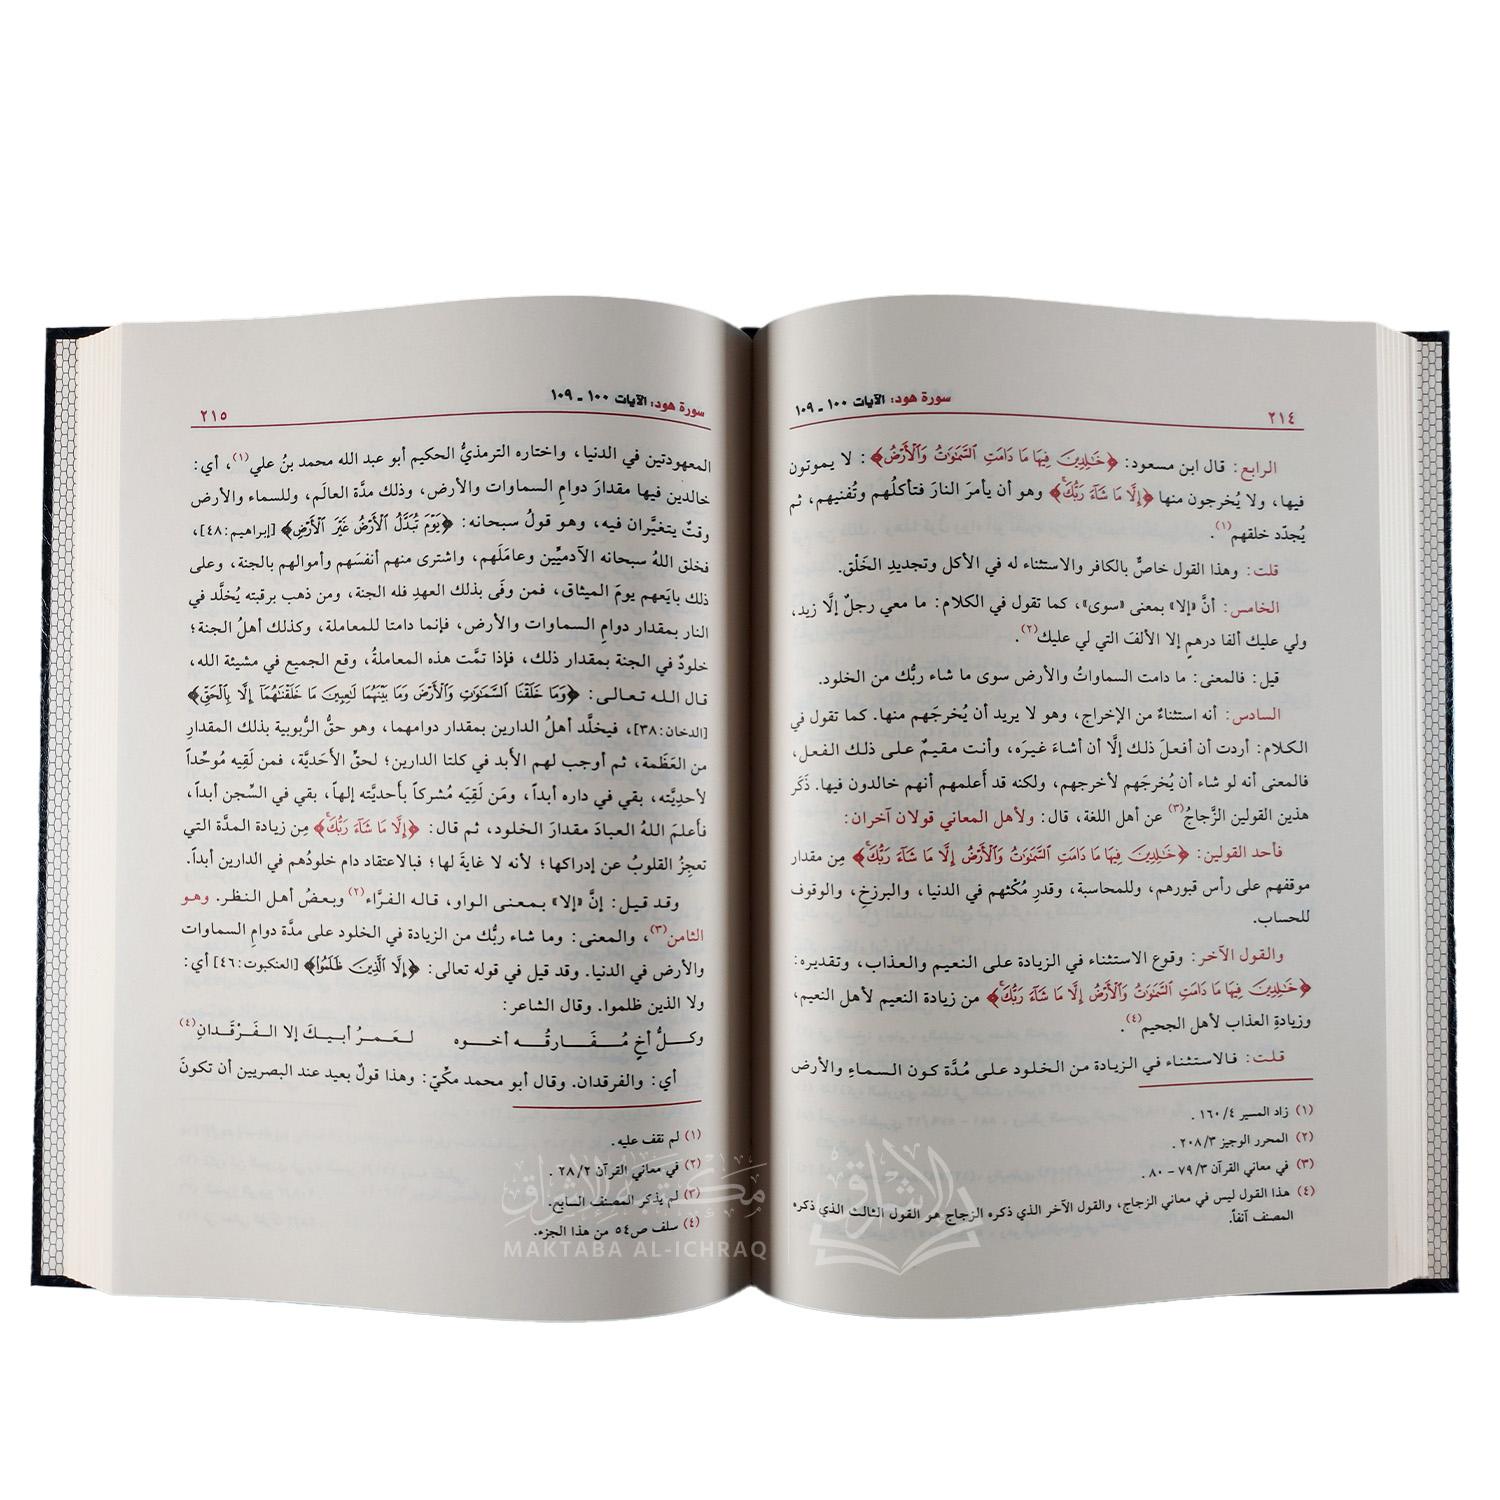 سورة هود: الآيات ١٠٠ ـ ١٠٩
٢١٤
الرابع: قال ابن مسعود: ﴿خَٰلِدِينَ فِيهَا مَا دَامَتِ ٱلسَّمَٰوَٰتُ وَٱلۡأَرۡضُ﴾: لا يموتون
فيها، ولا يُخرجون منها ﴿إِلَّا مَا شَآءَ رَبُّكَۚ﴾ وهو أن يأمرَ النارَ فتأكلُهم وتُفنيهم، ثم
يُجدّد خلقهم(١).
قلت: وهذا القول خاصٌّ بالكافر والاستثناء له في الأكل وتجديدِ الخَلْق.
الخامس: أنَّ «إلا» بمعنى «سوى»، كما تقول في الكلام: ما معي رجلٌ إلَّا زيد،
ولي عليك ألفا درهمٍ إلا الألفَ التي لي عليك(٢).
قيل: فالمعنى: ما دامت السماواتُ والأرض سوى ما شاء ربُّك من الخلود.
السادس: أنه استثناءٌ من الإخراج، وهو لا يريد أن يُخرجَهم منها. كما تقول في
الكلام: أردت أن أفعلَ ذلك إلَّا أن أشاءَ غيرَه، وأنت مقيمٌ على ذلك الفعل،
فالمعنى أنه لو شاء أن يُخرجَهم لأخرجهم، ولكنه قد أَعلمهم أنهم خالدون فيها. ذَكَر
هذين القولين الزَّجاجُ(٣) عن أهل اللغة، قال: ولأهل المعاني قولان آخران:
فأحد القولين: ﴿خَٰلِدِينَ فِيهَا مَا دَامَتِ ٱلسَّمَٰوَٰتُ وَٱلۡأَرۡضُ إِلَّا مَا شَآءَ رَبُّكَۚ﴾ مِن مقدار
موقفهم على رأس قبورهم، وللمحاسبة، وقدرِ مُكْثهم في الدنيا، والبرزخِ، والوقوف
للحساب.
والقول الآخر: وقوع الاستثناء في الزيادة على النعيم والعذاب، وتقديره:
﴿خَٰلِدِينَ فِيهَا مَا دَامَتِ ٱلسَّمَٰوَٰتُ وَٱلۡأَرۡضُ إِلَّا مَا شَآءَ رَبُّكَۚ﴾ من زيادة النعيم لأهل النعيم،
وزيادةِ العذاب لأهل الجحيم(٤).
قلت: فالاستثناء في الزيادة من الخلود على مُدَّة كون السماءِ والأرض
(١) زاد المسير ٤/ ١٦٠ .
(٢) المحرر الوجيز ٣/ ٢٠٨ .
(٣) في معاني القرآن ٣/ ٧٩ – ٨٠ .
(٤) هذا القول ليس في معاني الزجاج، والقول الآخر الذي ذكره الزجاج هو القول الثالث الذي ذكره
المصنف آنفاً.
سورة هود: الآيات ١٠٠ ـ ١٠٩
٢١٥
المعهودتين في الدنيا، واختاره الترمذيُّ الحكيم أبو عبد الله محمد بنُ علي(١)، أي:
خالدين فيها مقدارَ دوامِ السماوات والأرض، وذلك مدَّة العالَم، وللسماء والأرض
وقتٌ يتغيَّران فيه، وهو قولُ سبحانه: ﴿يَوۡمَ تُبَدَّلُ ٱلۡأَرۡضُ غَيۡرَ ٱلۡأَرۡضِ﴾ [إبراهيم: ٤٨]،
فخلق اللهُ سبحانه الآدميِّين وعاملَهم، واشترى منهم أنفسَهم وأموالهم بالجنة، وعلى
ذلك بايَعهم يومَ الميثاق، فمن وفَى بذلك العهدِ فله الجنة، ومن ذهب برقبته يُخلَّد في
النار بمقدار دوامِ السماوات والأرض، فإنما دامتا للمعاملة، وكذلك أهلُ الجنة؛
خلودٌ في الجنة بمقدار ذلك، فإذا تمَّت هذه المعاملةُ، وقع الجميع في مشيئة الله،
قال الله تعالى: ﴿وَمَا خَلَقۡنَا ٱلسَّمَٰوَٰتِ وَٱلۡأَرۡضَ وَمَا بَيۡنَهُمَا لَٰعِبِينَ مَا خَلَقۡنَٰهُمَآ إِلَّا بِٱلۡحَقِّ﴾
[الدخان: ٣٨]، فيخلَّد أهلُ الدارين بمقدار دوامهما، وهو حقُّ الرُّبوبية بذلك المقدارِ
من العَظَمة، ثم أوجب لهم الأبد في كلتا الدارين؛ لحقِّ الأَحَديَّة، فمن لَقِيه مُوحِّداً
لأحديَّته، بقي في داره أبداً، ومَن لَقِيَه مُشركاً بأَحديَّته إلهاً، بقي في السِّجن أبداً،
فأعلمَ اللهُ العبادَ مقدارَ الخلود، ثم قال: ﴿إِلَّا مَا شَآءَ رَبُّكَۚ﴾ مِن زيادة المدَّة التي
تعجِزُ القلوبُ عن إدراكها؛ لأنه لا غايةَ لها؛ فبالاعتقاد دام خلودُهم في الدارين أبداً.
وقد قيل: إنَّ «إلا» بمعنى الواو، قاله الفرَّاء(٢) وبعضُ أهل النظر. وهو
الثامن(٣)، والمعنى: وما شاء ربُّك من الزيادة في الخلود على مدَّة دوامِ السماوات
والأرض في الدنيا. وقد قيل في قوله تعالى: ﴿إِلَّا ٱلَّذِينَ ظَلَمُواْ﴾ [العنكبوت: ٤٦] أي:
ولا الذين ظلموا. وقال الشاعر:
وكلُّ أخٍ مُفَارقُه أخوه لعَمرُ أبيكَ إلا الفَرْقَدانِ(٤)
أي: والفرقدان. وقال أبو محمد مكّيّ: وهذا قولٌ بعيد عند البصريين أن تكونَ
(١) لم نقف عليه.
(٢) في معاني القرآن ٢/ ٢٨ .
(٣) لم يذكر المصنف السابع.
(٤) سلف ص٥٤ من هذا الجزء.
مكتبة الإشراق
MAKTABA AL-ICHRAQ
الإشراق